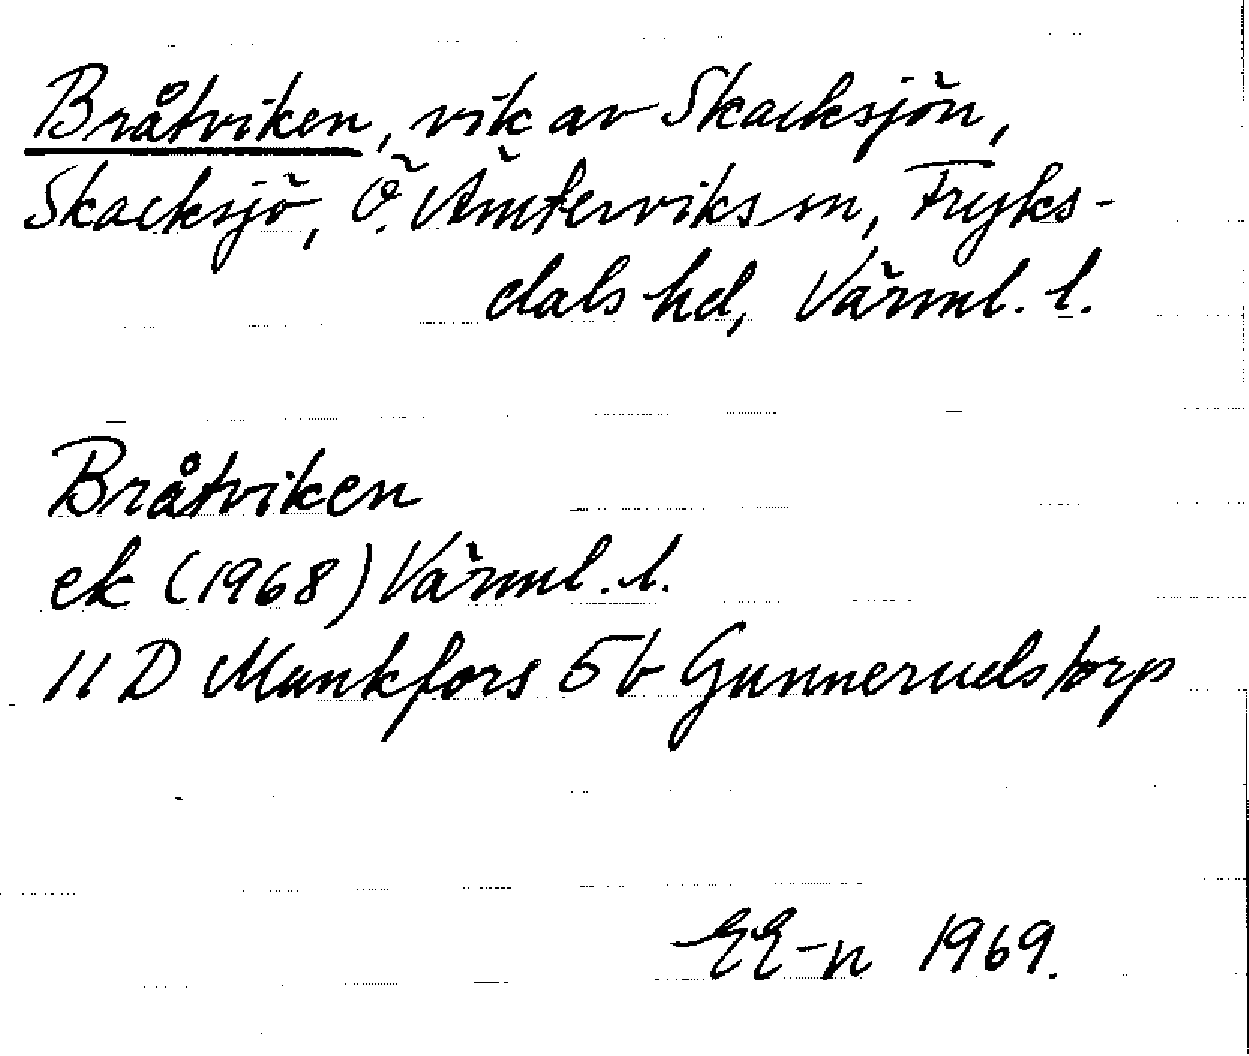 Bråtviken, vik av Skacksjön,
Skacksjö, Ö. Ämterviks sn, Fryks-
dals hd, Värml. l.
Bråtviken
ek (1968) Värml. l.
11 D Munkfors 5b Gunnerudstorp
EE-n 1969.